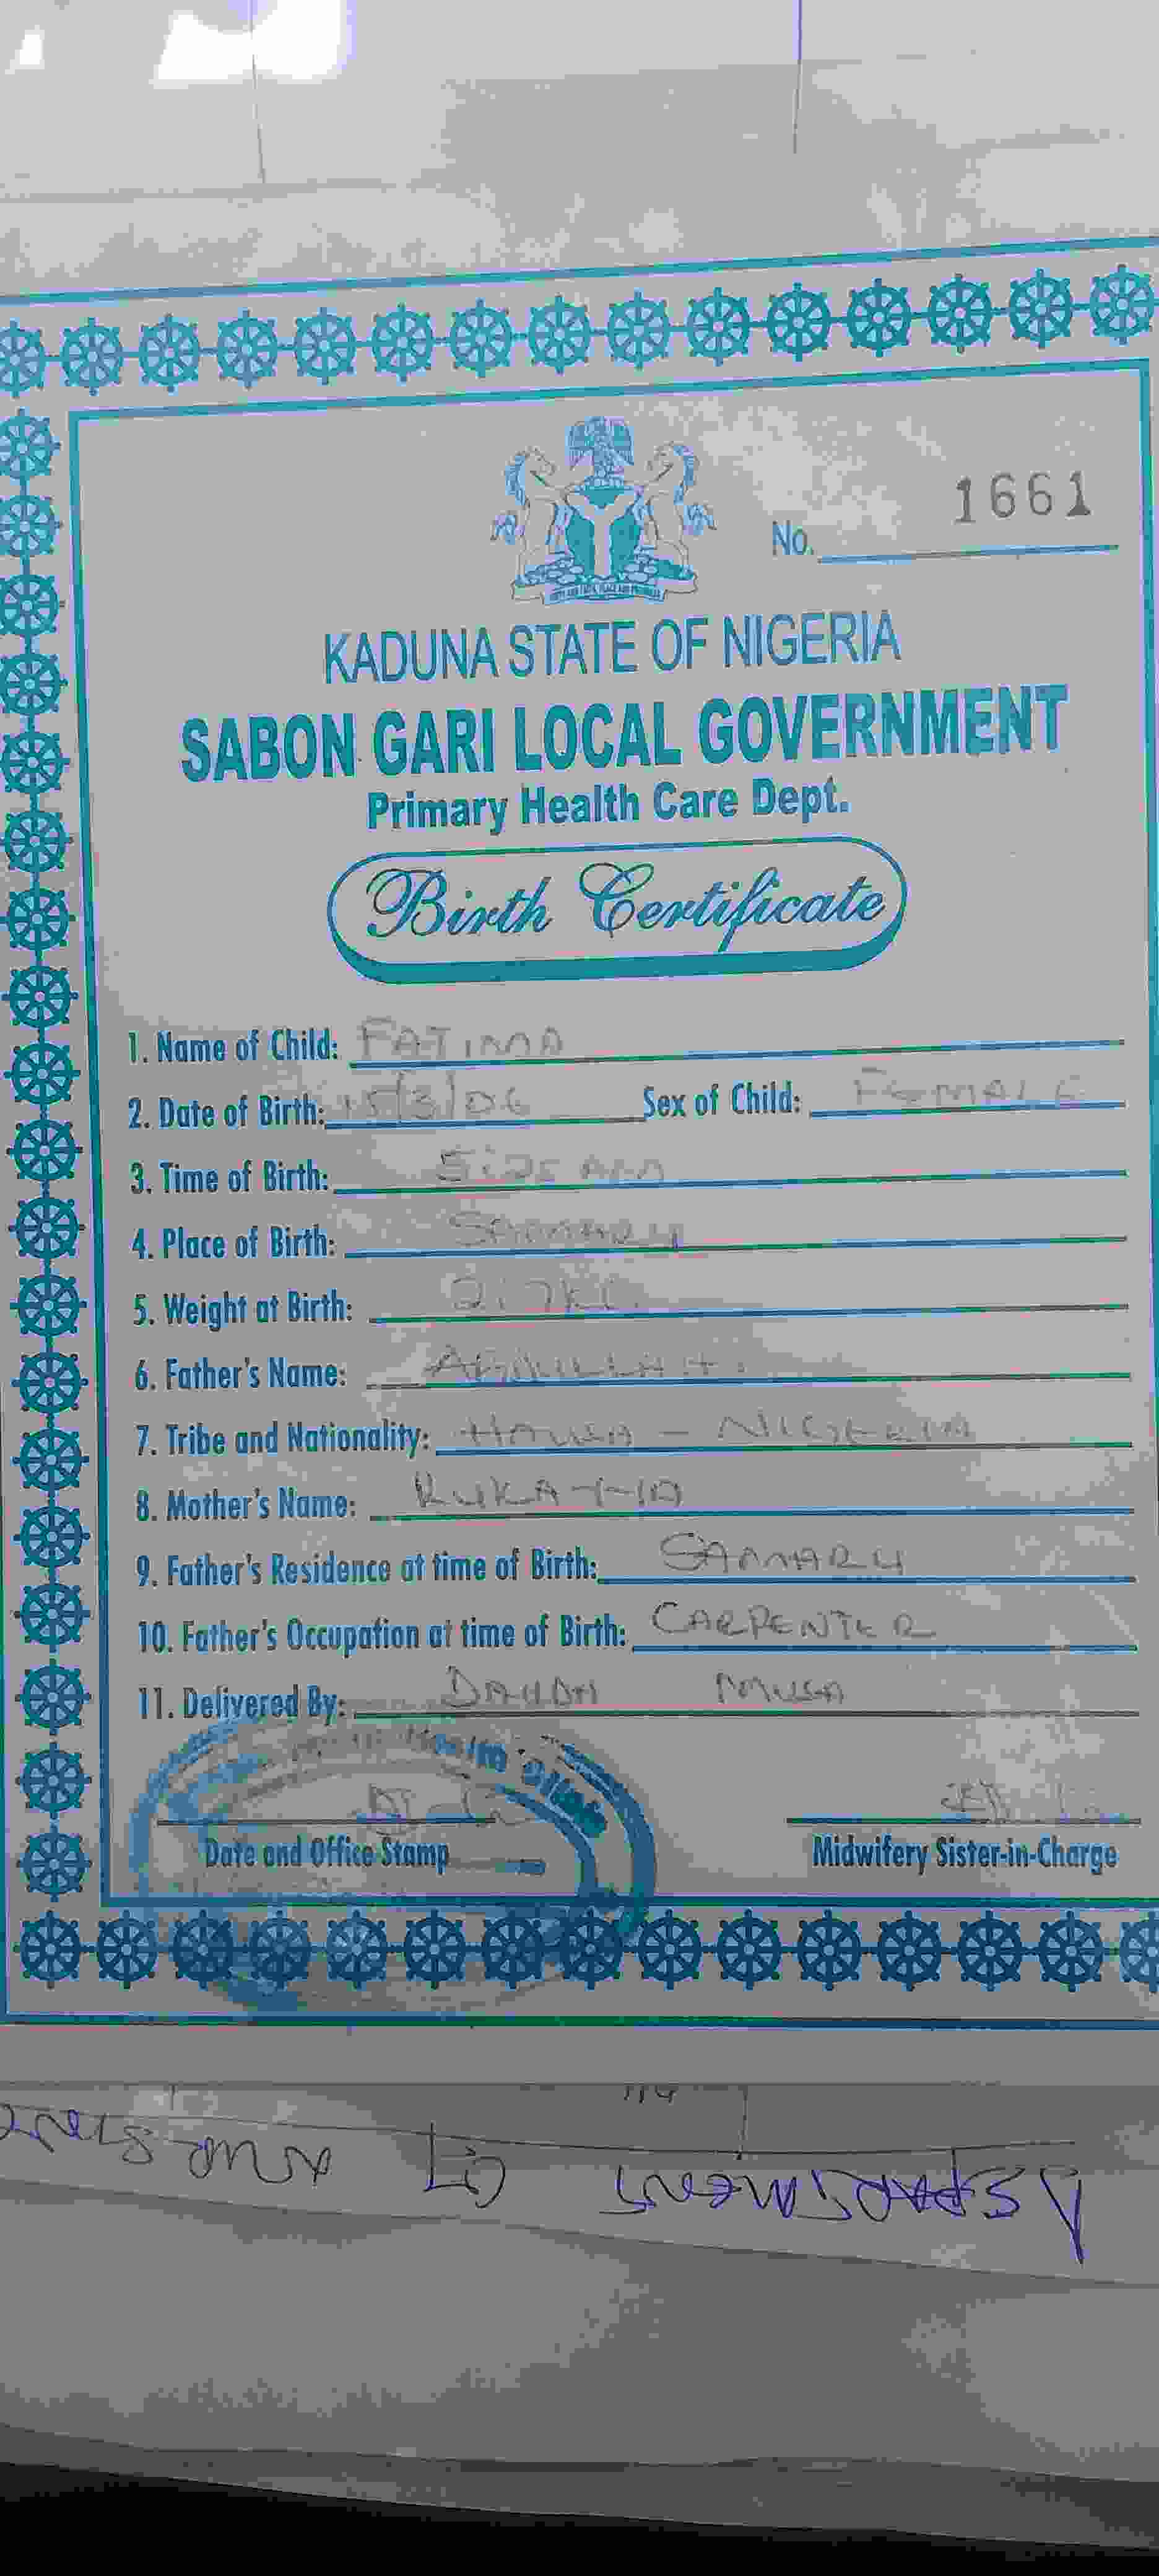 1661
No.
KADUNA STATE OF NIGERIA
SABON GARI LOCAL GOVERNMENT
Primary Health Care Dept.
Birth Certificate
1. Name of Child: FATIMA
2. Date of Birth: 15/3/06 Sex of Child: FEMALE
3. Time of Birth:
4. Place of Birth: SAMARU
5. Weight at Birth:
6. Father's Name:
7. Tribe and Nationality: HAUSA - NIGERIA
8. Mother's Name: RUKAYYA
9. Father's Residence at time of Birth: SAMARU
10. Father's Occupation at time of Birth: CARPENTER
11. Delivered By: DAUDA MUSA
Date and Office Stamp
Midwifery Sister-in-Charge